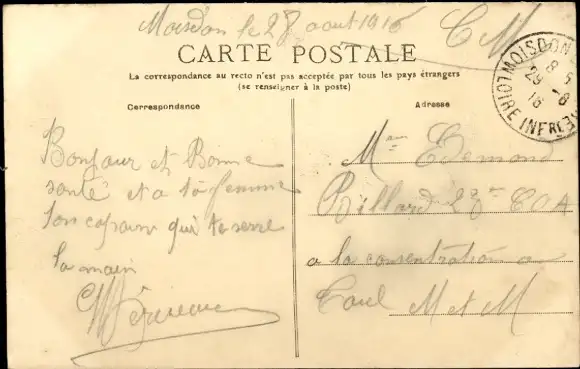 Moisdon le 28 aout 1916
C M
CARTE POSTALE
La correspondance au recto n'est pas acceptée par tous les pays étrangers
(se renseigner à la poste)
MOISDON
8 5
29 -8
16
LOIRE INFRE
Correspondance
Bonjour et Bonne
santé et a ta femme
ton copain qui te serre
la main
Adresse
Edmond
Billard COA
a la consentration a
Toul M et M